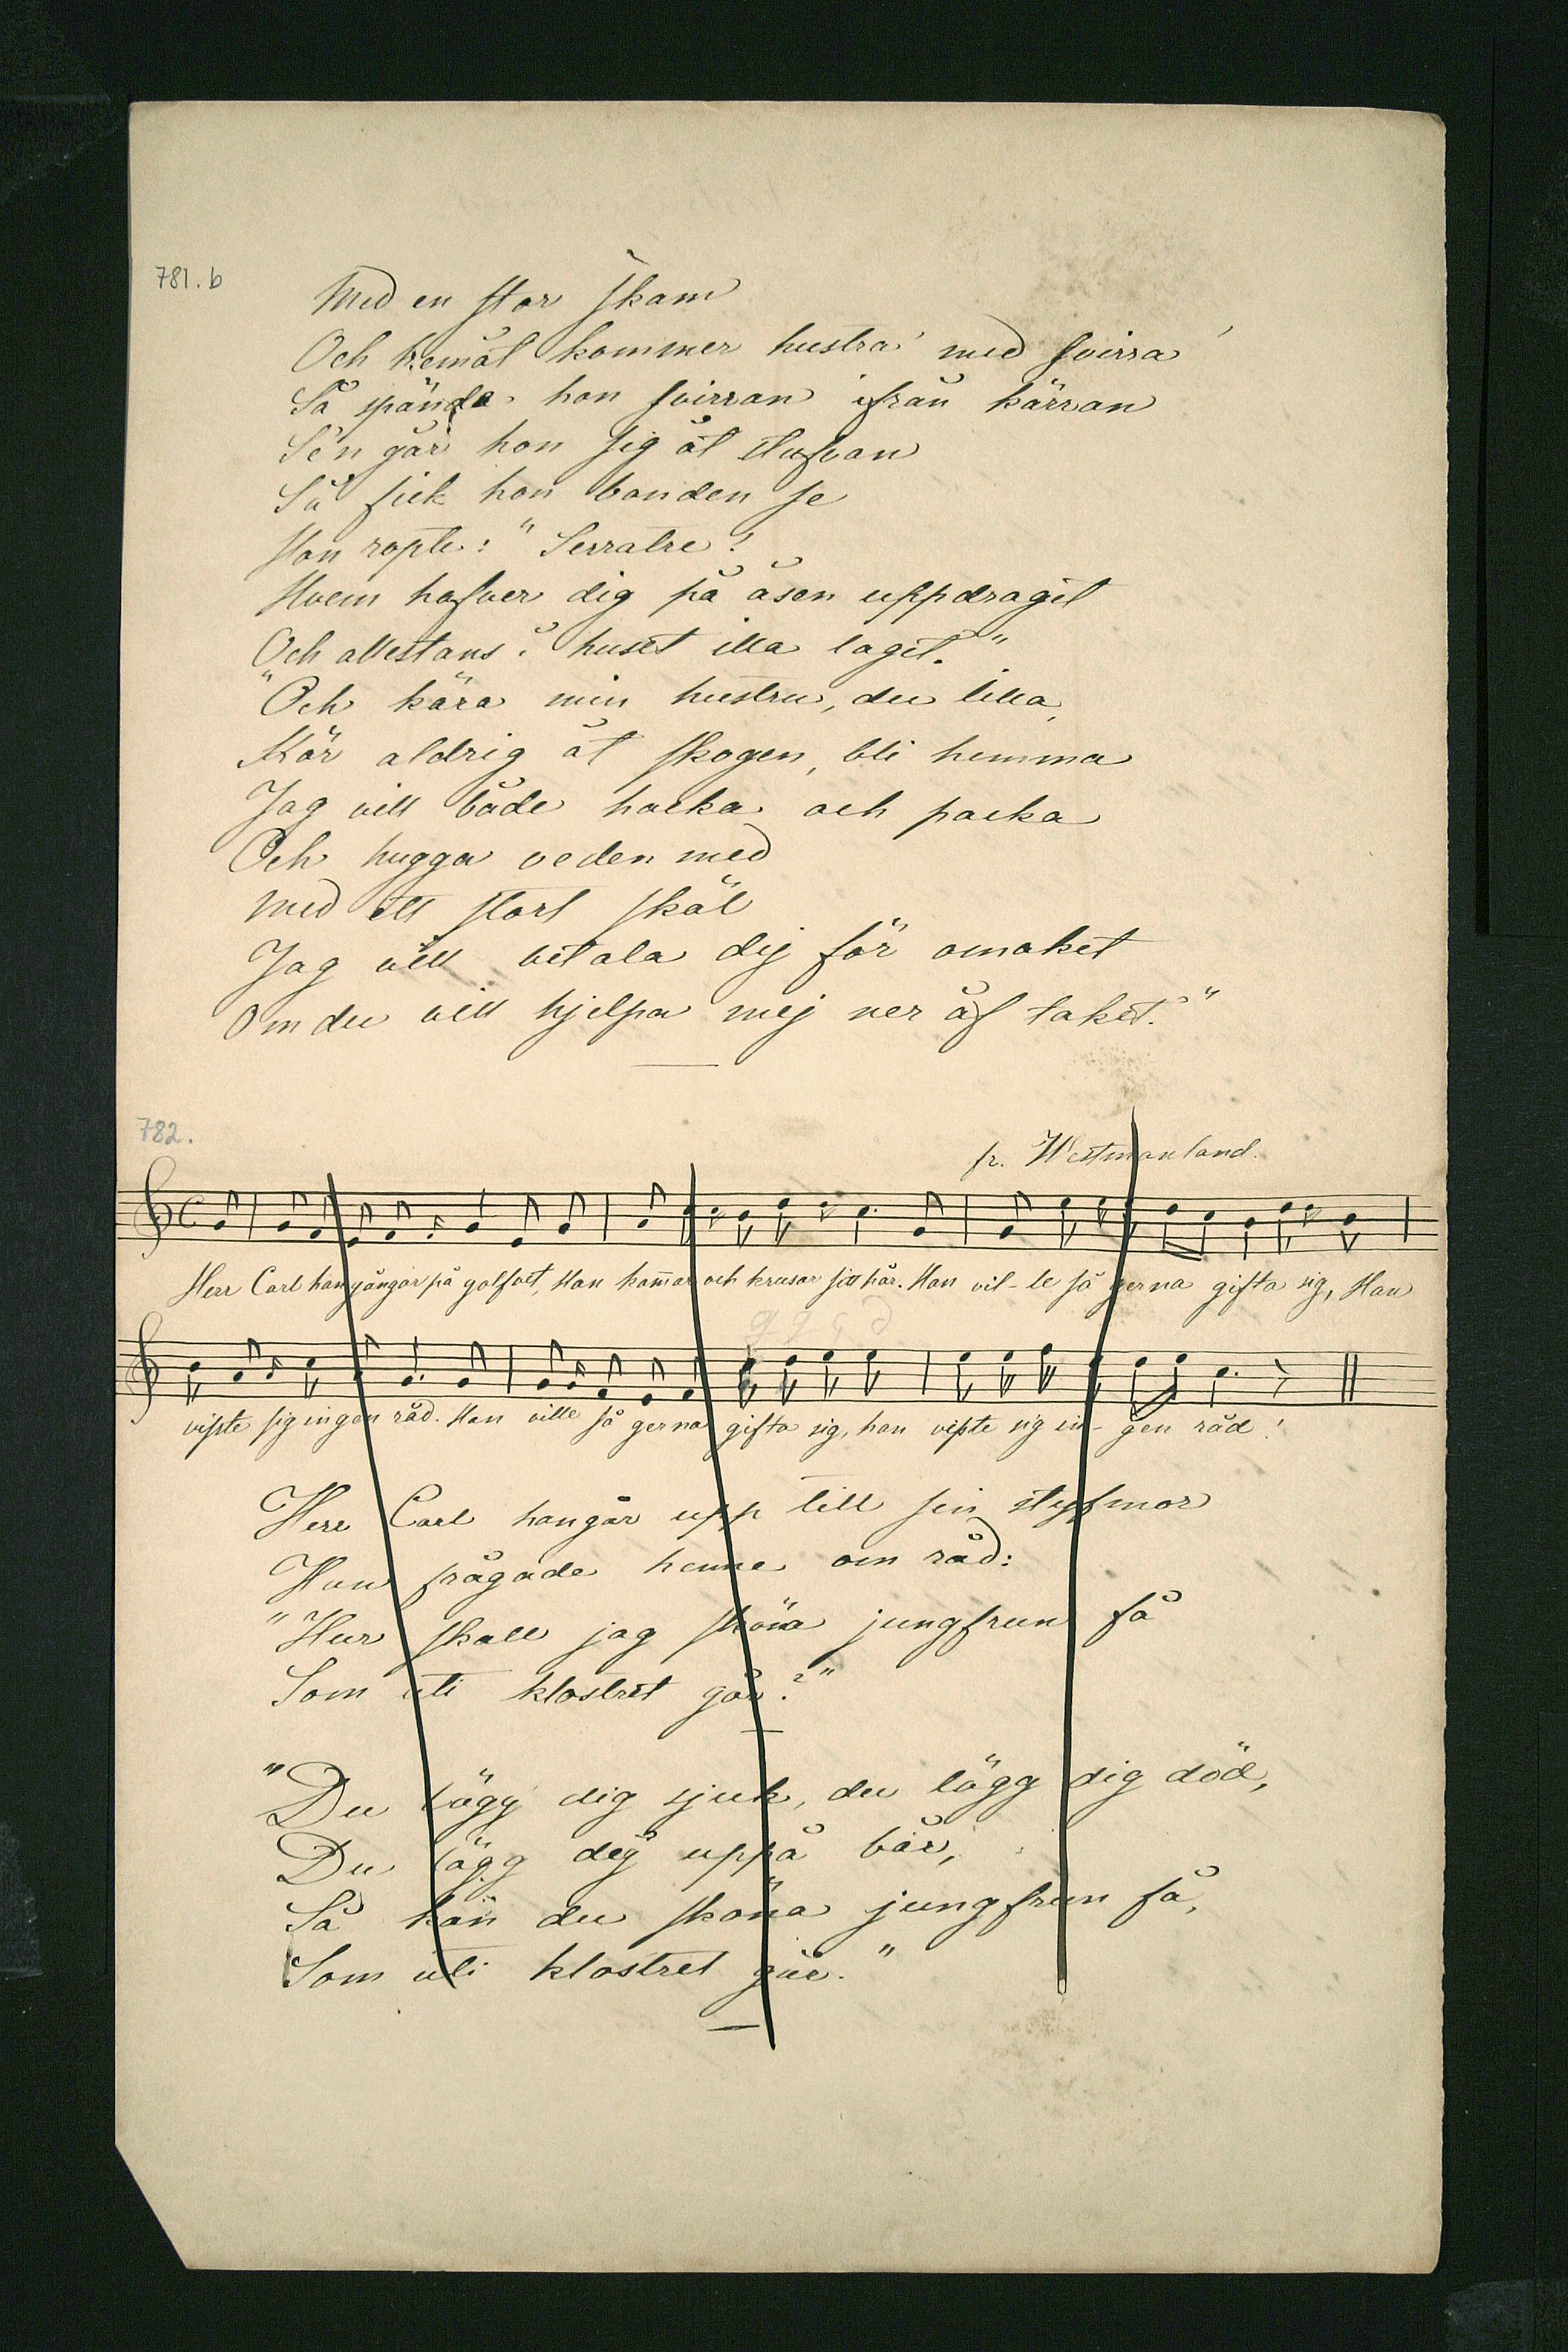 781.b
Med en stor skam
Och hemåt kommer hustra' med svirra'
Så spände hon svirran ifrån kärran
Se'n går hon sig åt stufvan
Så fick hon bonden se
Hon ropte: "Serratre!
Hvem hafver dig på åsen uppdragit
Och allestans i huset illa lagit."
"Och kära min hustru, du lilla,
Kör aldrig åt skogen, bli hemma
Jag vill både hacka och packa
Och hugga veden med
Med ett stort skäl
Jag vill betala dej för omaket
Om du vill hjelpa mej ner åf taket."
782.
fr. Westmanland.
Herr Carl han gångar på golfvet, Han kam̄ar och krusar sitt hår. Han vil-le så gerna gifta sig, Han
visste sig ingen råd. Han ville så gerna gifta sig, han visste sig in-gen råd!
Herr Carl han går upp till sin styfmor
Han frågade henne om råd:
"Hur skall jag sköna jungfrun få
Som uti klostret går?"
"Du lägg dig sjuk, du lägg dig död,
Du lägg dej uppå bår,
Så kan du sköna jungfrun få,
Som uti klostret går."